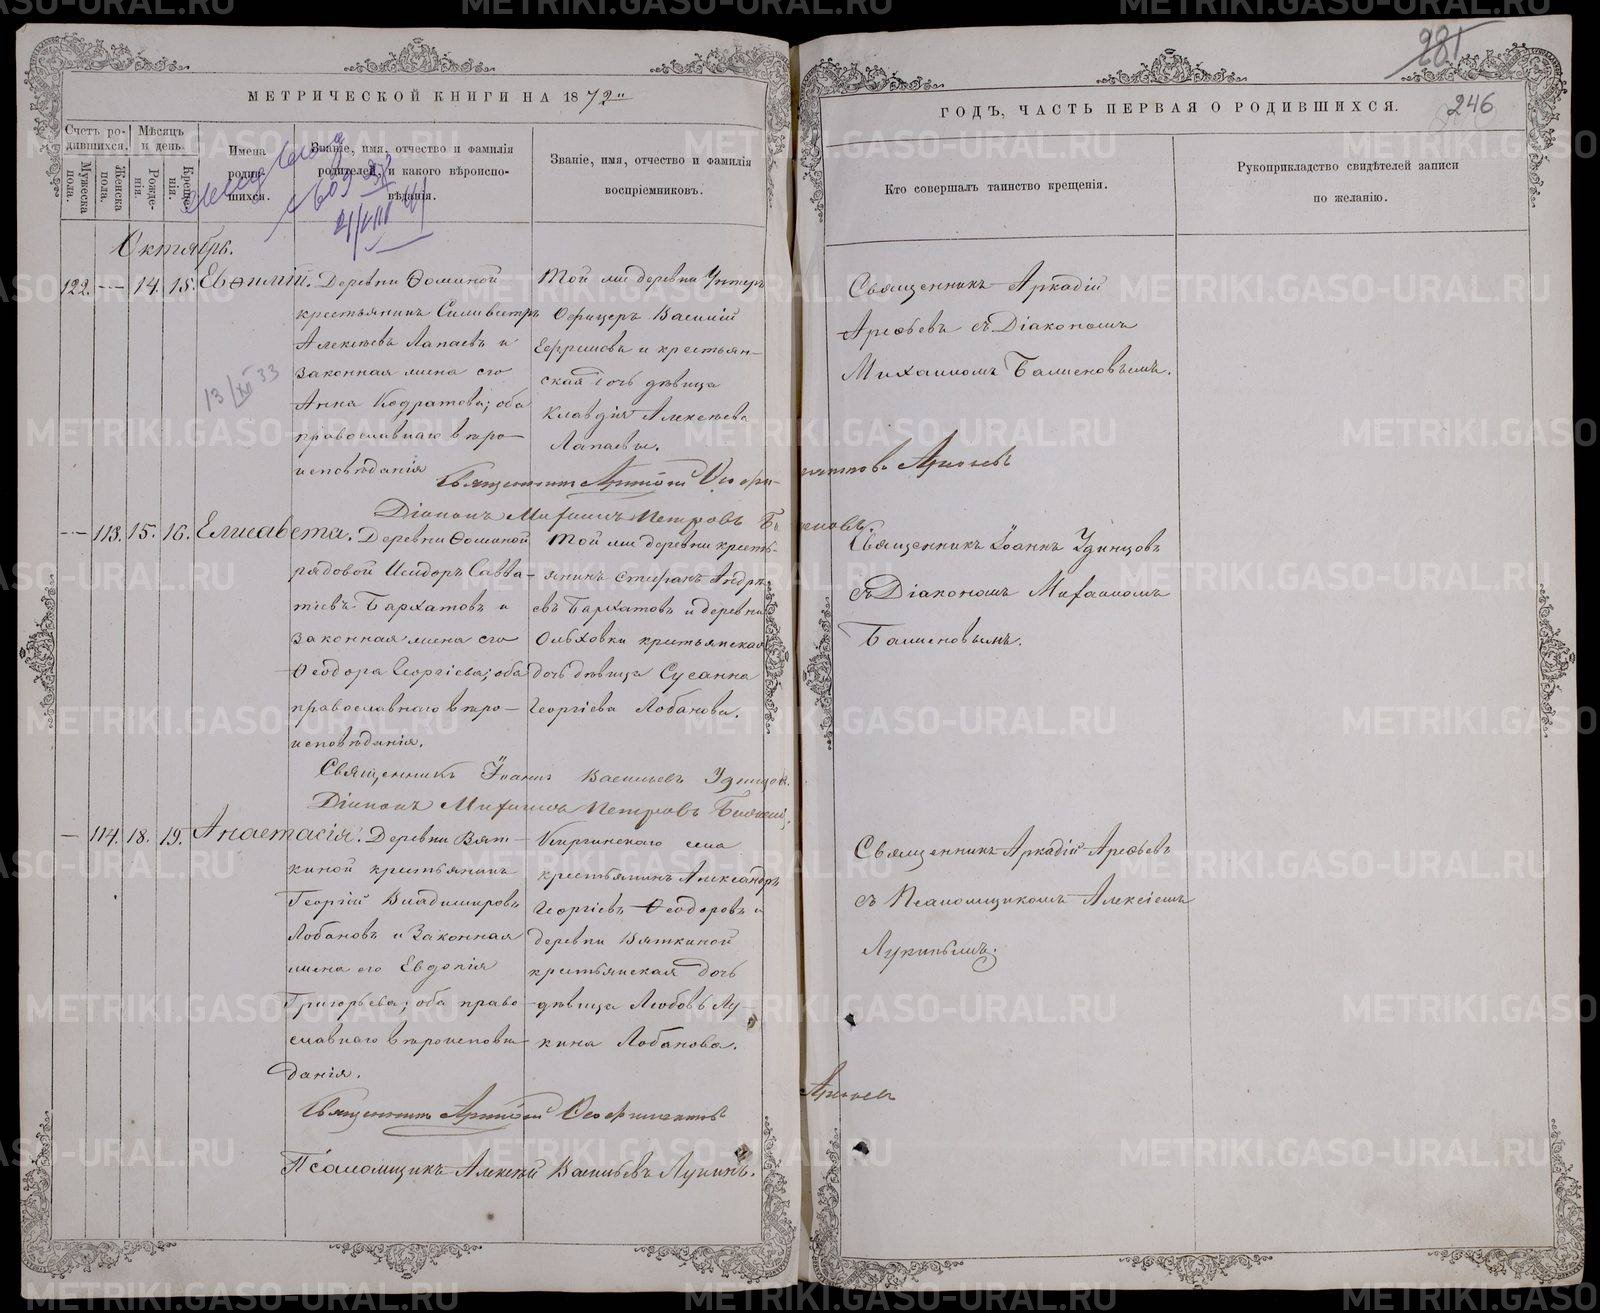 МЕТРИЧЕСКОЙ КНИГИ НА 1872
Счетъ родившихся.
Мужеска пола.
Женска пола.
Мѣсяцъ и день.
Рожденія.
Крещенія.
Имена родившихся.
Званіе, имя, отчество и фамилія родителей, и какого вѣроисповѣданія.
Званіе, имя, отчество и фамилія воспріемниковъ.
21/VIII
Октябрь.
122. — 14. 15. Евѳимій.
13/XII 33
Деревни Ѳоминой
крестьянинъ Силивестръ
Алексѣевъ Лапаевъ и
законная жена его
Анна Кодратова; оба
православнаго вѣро-
исповѣданія
Той же деревни Унтеръ
Офицеръ Василій
Ефремовъ и крестьян-
ская дочь дѣвица
Клавдія Алексѣева
Лапаевы.
Священникъ Аркадій
Діаконъ Михаилъ Петровъ
— 113. 15. 16. Елисавета.
Деревни Ѳоминой
рядовой Исидоръ Савва-
тіевъ Бархатовъ и
законная жена его
Ѳеодора Георгіева; оба
православнаго вѣро-
исповѣданія.
Той же деревни кресть-
янинъ Стефанъ Андре-
евъ Бархатовъ и деревни
Ольховки крестьянская
дочь дѣвица Сусанна
Георгіева Лобанова.
Священникъ Іоаннъ Васильевъ Удинцов.
Діаконъ Михаилъ Петровъ
— 114. 18. 19. Анастасія.
Деревни Вят-
киной крестьянинъ
Георгій Владиміровъ
Лобановъ и законная
жена его Евдокія
Григорьева; оба право-
славнаго вѣроисповѣ-
данія.
Киргинскаго села
крестьянинъ Александръ
Георгіевъ Ѳеодоровъ и
деревни Вяткиной
крестьянская дочь
дѣвица Любовь Лу-
кина Лобанова.
Священникъ Аркадій
Псаломщикъ Алексѣй Васильевъ Лукинъ.
281
246
ГОДЪ, ЧАСТЬ ПЕРВАЯ О РОДИВШИХСЯ.
Кто совершалъ таинство крещенія.
Рукоприкладство свидѣтелей записи по желанію.
Священникъ Аркадій
Арефьевъ съ Діакономъ
Михаиломъ
Арефьевъ
Священникъ Іоаннъ Удинцовъ
съ Діакономъ Михаиломъ
Священникъ Аркадій Арефьевъ
съ Псаломщикомъ Алексіемъ
Лукинымъ.
Арефьевъ
METRIKI.GASO-URAL.RU